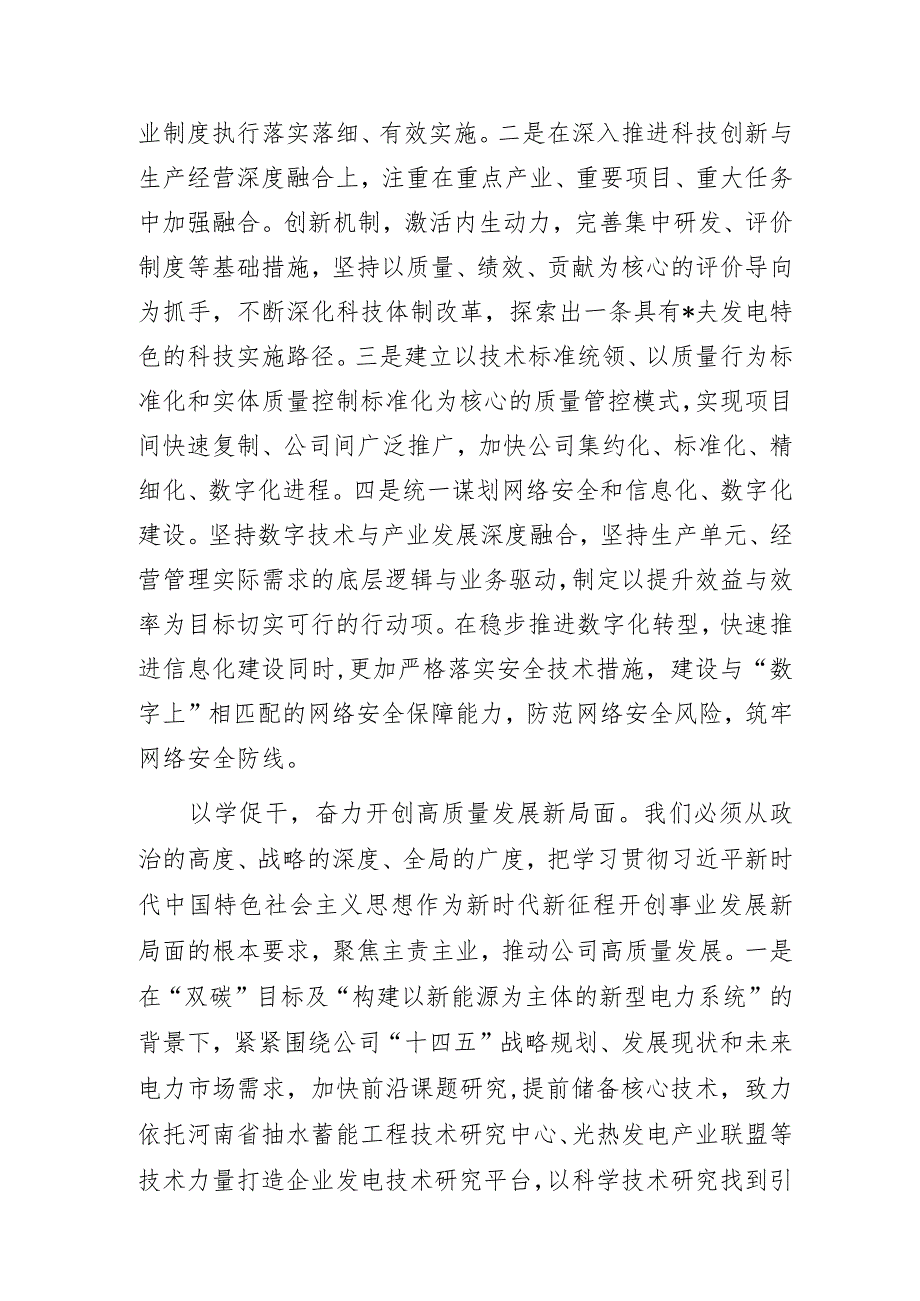 业制度执行落实落细、有效实施。二是在深入推进科技创新与
生产经营深度融合上，注重在重点产业、重要项目、重大任务
中加强融合。创新机制，激活内生动力，完善集中研发、评价
制度等基础措施，坚持以质量、绩效、贡献为核心的评价导向
为抓手，不断深化科技体制改革，探索出一条具有*夫发电特
色的科技实施路径。三是建立以技术标准统领、以质量行为标
准化和实体质量控制标准化为核心的质量管控模式,实现项目
间快速复制、公司间广泛推广，加快公司集约化、标准化、精
细化、数字化进程。四是统一谋划网络安全和信息化、数字化
建设。坚持数字技术与产业发展深度融合，坚持生产单元、经
营管理实际需求的底层逻辑与业务驱动,制定以提升效益与效
率为目标切实可行的行动项。在稳步推进数字化转型，快速推
进信息化建设同时,更加严格落实安全技术措施，建设与“数
字上”相匹配的网络安全保障能力，防范网络安全风险，筑牢
网络安全防线。
以学促干，奋力开创高质量发展新局面。我们必须从政
治的高度、战略的深度、全局的广度，把学习贯彻习近平新时
代中国特色社会主义思想作为新时代新征程开创事业发展新
局面的根本要求，聚焦主责主业，推动公司高质量发展。一是
在“双碳”目标及“构建以新能源为主体的新型电力系统”的
背景下，紧紧围绕公司“十四五”战略规划、发展现状和未来
电力市场需求，加快前沿课题研究,提前储备核心技术，致力
依托河南省抽水蓄能工程技术研究中心、光热发电产业联盟等
技术力量打造企业发电技术研究平台,以科学技术研究找到引